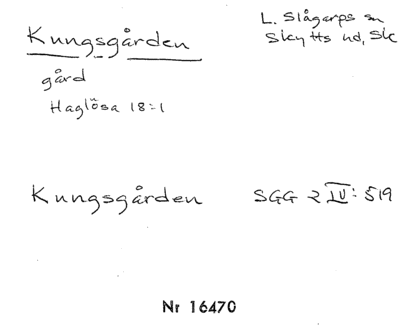 Kungsgården
L. Slågarps sn
Skytts hd, Sk
gård
Haglösa 18:1
Kungsgården SGG 2 IV: 519
Nr 16470